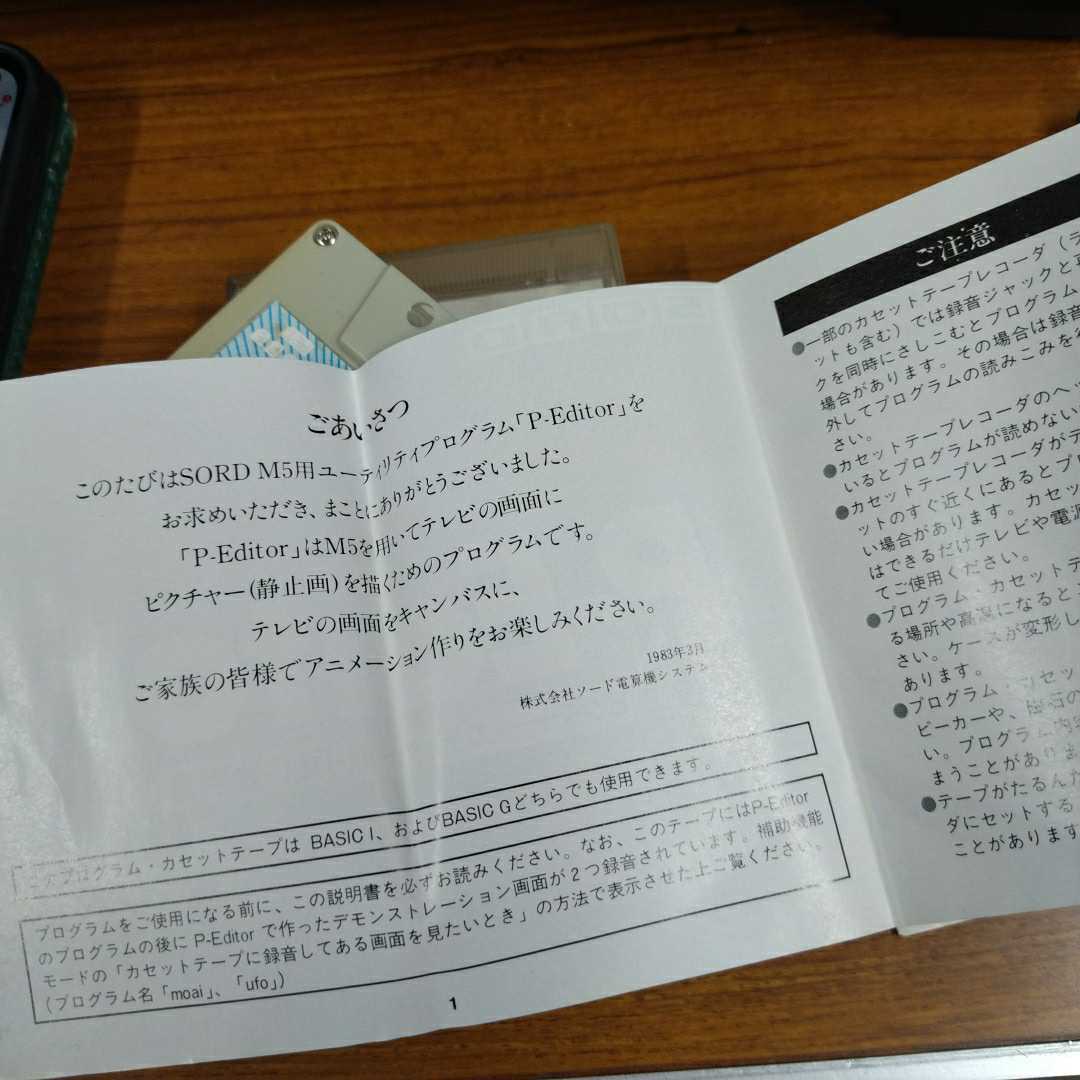 ごあいさつ
このたびはSORD M5用ユーティリティプログラム「P-Editor」を
お求めいただき、まことにありがとうございました。
「P-Editor」はM5を用いてテレビの画面に
ピクチャー(静止画)を描くためのプログラムです。
テレビの画面をキャンバスに、
ご家族の皆様でアニメーション作りをお楽しみください。
1983年3月
株式会社ソード電算機システム
このプログラム・カセットテープは BASIC I、およびBASIC Gどちらでも使用できます。
プログラムをご使用になる前に、この説明書を必ずお読みください。なお、このテープにはP-Editor
のプログラムの後に P-Editor で作ったデモンストレーション画面が2つ録音されています。補助機能
モードの「カセットテープに録音してある画面を見たいとき」の方法で表示させた上ご覧ください。
(プログラム名「moai」、「ufo」)
1
ご注意
●一部のカセットテープレコーダ(ラ
ットも含む)では録音ジャックと再
クを同時にさしこむとプログラム
場合があります。その場合は録音
外してプログラムの読みこみを行
さい。
●カセットテープレコーダのヘッ
いるとプログラムが読めない
●カセットテープレコーダがテ
ットのすぐ近くにあるとプロ
い場合があります。カセッ
はできるだけテレビや電源
てご使用ください。
●プログラム・カセットテ
る場所や高温になると
さい。ケースが変形し
あります。
●プログラム・カセッ
ピーカーや、磁石の
い。プログラム内容
まうことがあり
●テープがたるんだ
ダにセットする
ことがあります